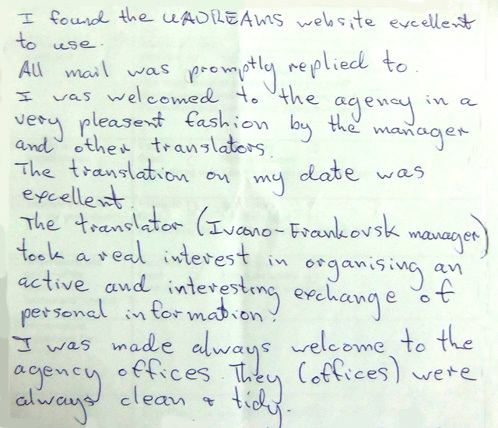 I found the UADREAMS website excellent
to use.
All mail was promptly replied to.
I was welcomed to the agency in a
very pleasent fashion by the manager
and other translators.
The translation on my date was
excellent.
The translator (Ivano-Frankovsk manager)
took a real interest in organising an
active and interesting exchange of
personal information.
I was made always welcome to the
agency offices. They (offices) were
always clean & tidy.